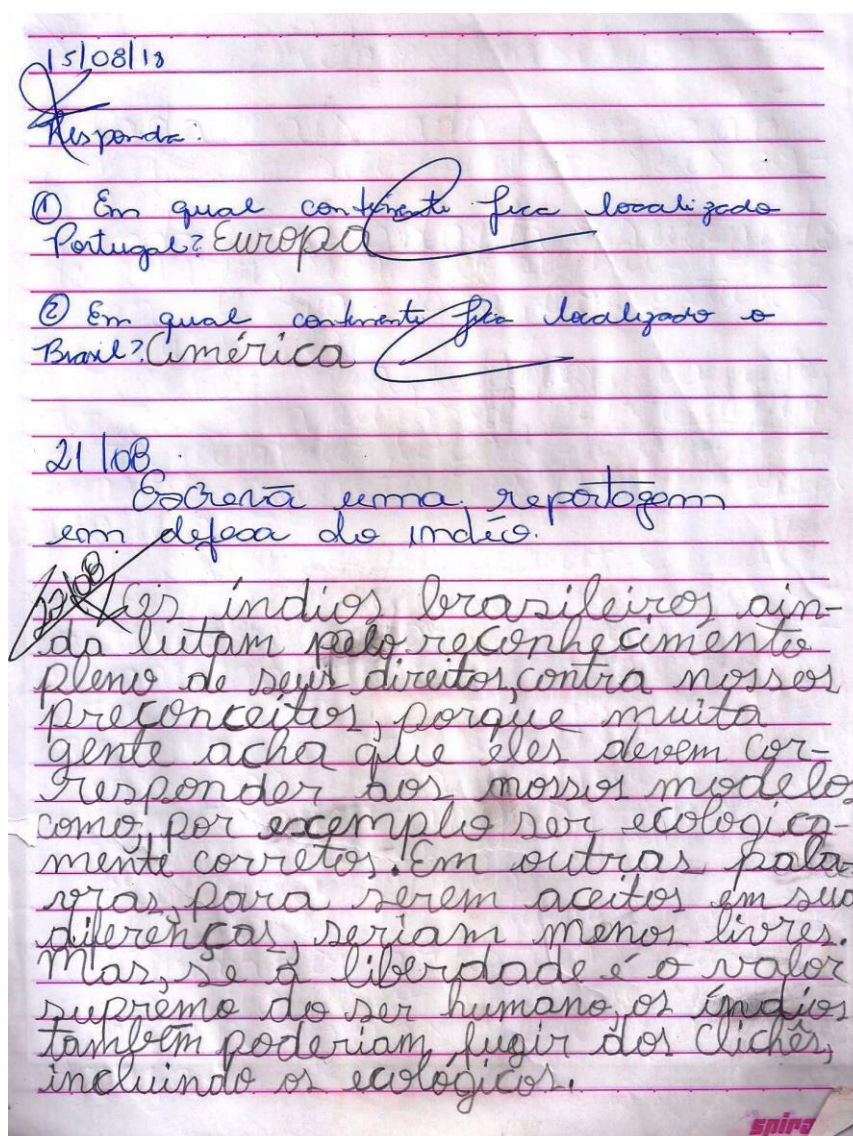 15/08/18
Responda:
① Em qual continente fica localizado
Portugal? Europa
② Em qual continente fica localizado o
Brasil? América
21/08
Escreva uma reportagem
em defesa do índio.
27/08
Os índios brasileiros ain-
da lutam pelo reconhecimento
pleno de seus direitos, contra nossos
preconceitos, porque muita
gente acha que eles devem cor-
responder aos nossos modelos
como, por exemplo ser ecologica-
mente corretos. Em outras pala-
vras, para serem aceitos em sua
diferenças, seriam menos livres.
Mas, se a liberdade é o valor
supremo do ser humano, os índios
também poderiam fugir dos clichês,
incluindo os ecológicos.
spira